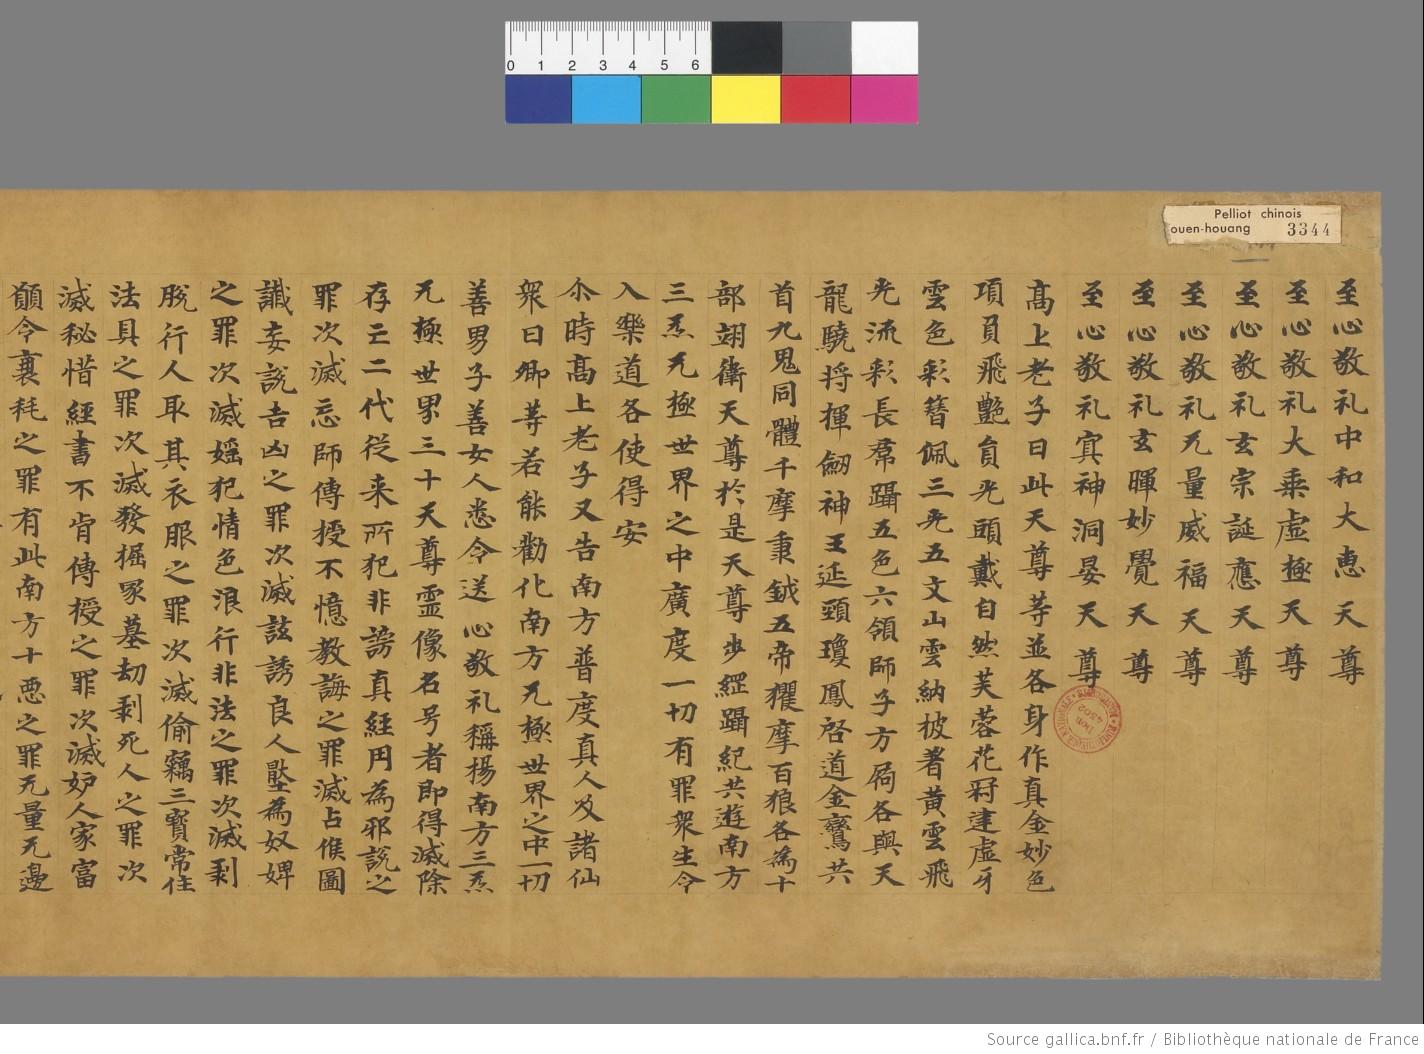 0 1 2 3 4 5 6
Pelliot chinois
ouen-houang 3344
至心敬礼中和大恵天尊
至心敬礼大乘虚極天尊
至心敬礼玄宗誕應天尊
至心敬礼无量威福天尊
至心敬礼玄暉妙覺天尊
至心敬礼真神洞晏天尊
髙上老子曰此天尊等並各身作真金妙色
項員飛艶負光頭戴自然芙蓉花冠建虚牙
雲色彩簪佩三光五文山雲納披著黄雲飛
光流彩長帬躡五色六領師子方局各與天
龍驍将揮劒神王延頸瓊鳳啓道金鸞共
首九鬼同體千摩秉鉞五帝玃摩百狼各為十
部翊衛天尊於是天尊步經躡紀共遊南方
三炁无極世界之中廣度一切有罪衆生令
入樂道各使得安
尒時髙上老子又告南方普度真人及諸仙
衆曰卿等若能勸化南方无極世界之中一切
善男子善女人悉令送心敬礼稱揚南方三炁
无極世界三十天尊靈像名号者即得滅除
存亡二代従来所犯非謗真経円為邪説之
罪次滅忘師傳授不憶教誨之罪滅占候圖
讖妄説吉凶之罪次滅詃誘良人壓為奴婢
之罪次滅婬犯情色浪行非法之罪次滅剥
脱行人取其衣服之罪次滅偷竊三寳常住
法具之罪次滅發掘冢墓刧剥死人之罪次
滅秘惜經書不肯傳授之罪次滅妒人家富
願令衰耗之罪有此南方十悪之罪无量无邊
Source gallica.bnf.fr / Bibliothèque nationale de France